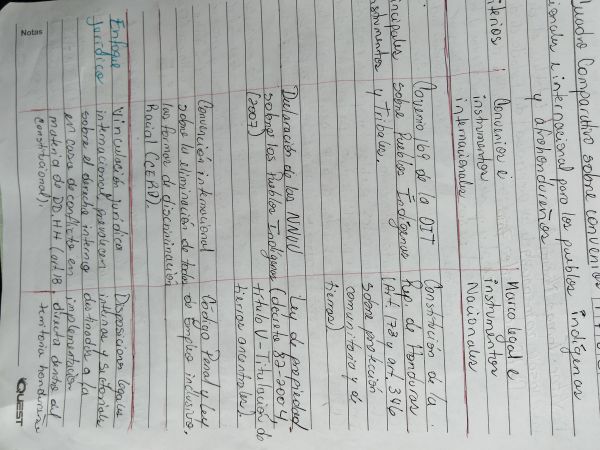 Cuadro Comparativo sobre convenios
e internacional para los pueblos indígenas
y afrohondureños
Criterios
Convenios e
instrumentos
internacionales
Marco legal e
instrumentos
Nacionales
Principales
instrumentos
Convenio 169 de la OIT
sobre Pueblos Indígenas
y Tribales.
Declaración de las NNUU
sobre los Pueblos Indígenas
(2007)
Convención internacional
sobre la eliminación de todas
las formas de discriminación
Racial (CERD).
Constitución de la
Rep. de Honduras
(Art. 173 y art. 346
sobre protección
comunitario y de
tierras)
Ley de propiedad
(decreto 82-2004,
título V - Titulación de
tierras ancestrales).
Código Penal y Ley
de Empleo inclusivo.
Enfoque
Jurídico
Vinculación jurídica
internacional prevalecen
sobre el derecho interno
en caso de conflicto en
materia de DD.HH (art. 18
constitucional).
Disposiciones legales
internas y sectoriales
destinados a la
implementación
directa dentro del
territorio hondureño
Notas
QUEST